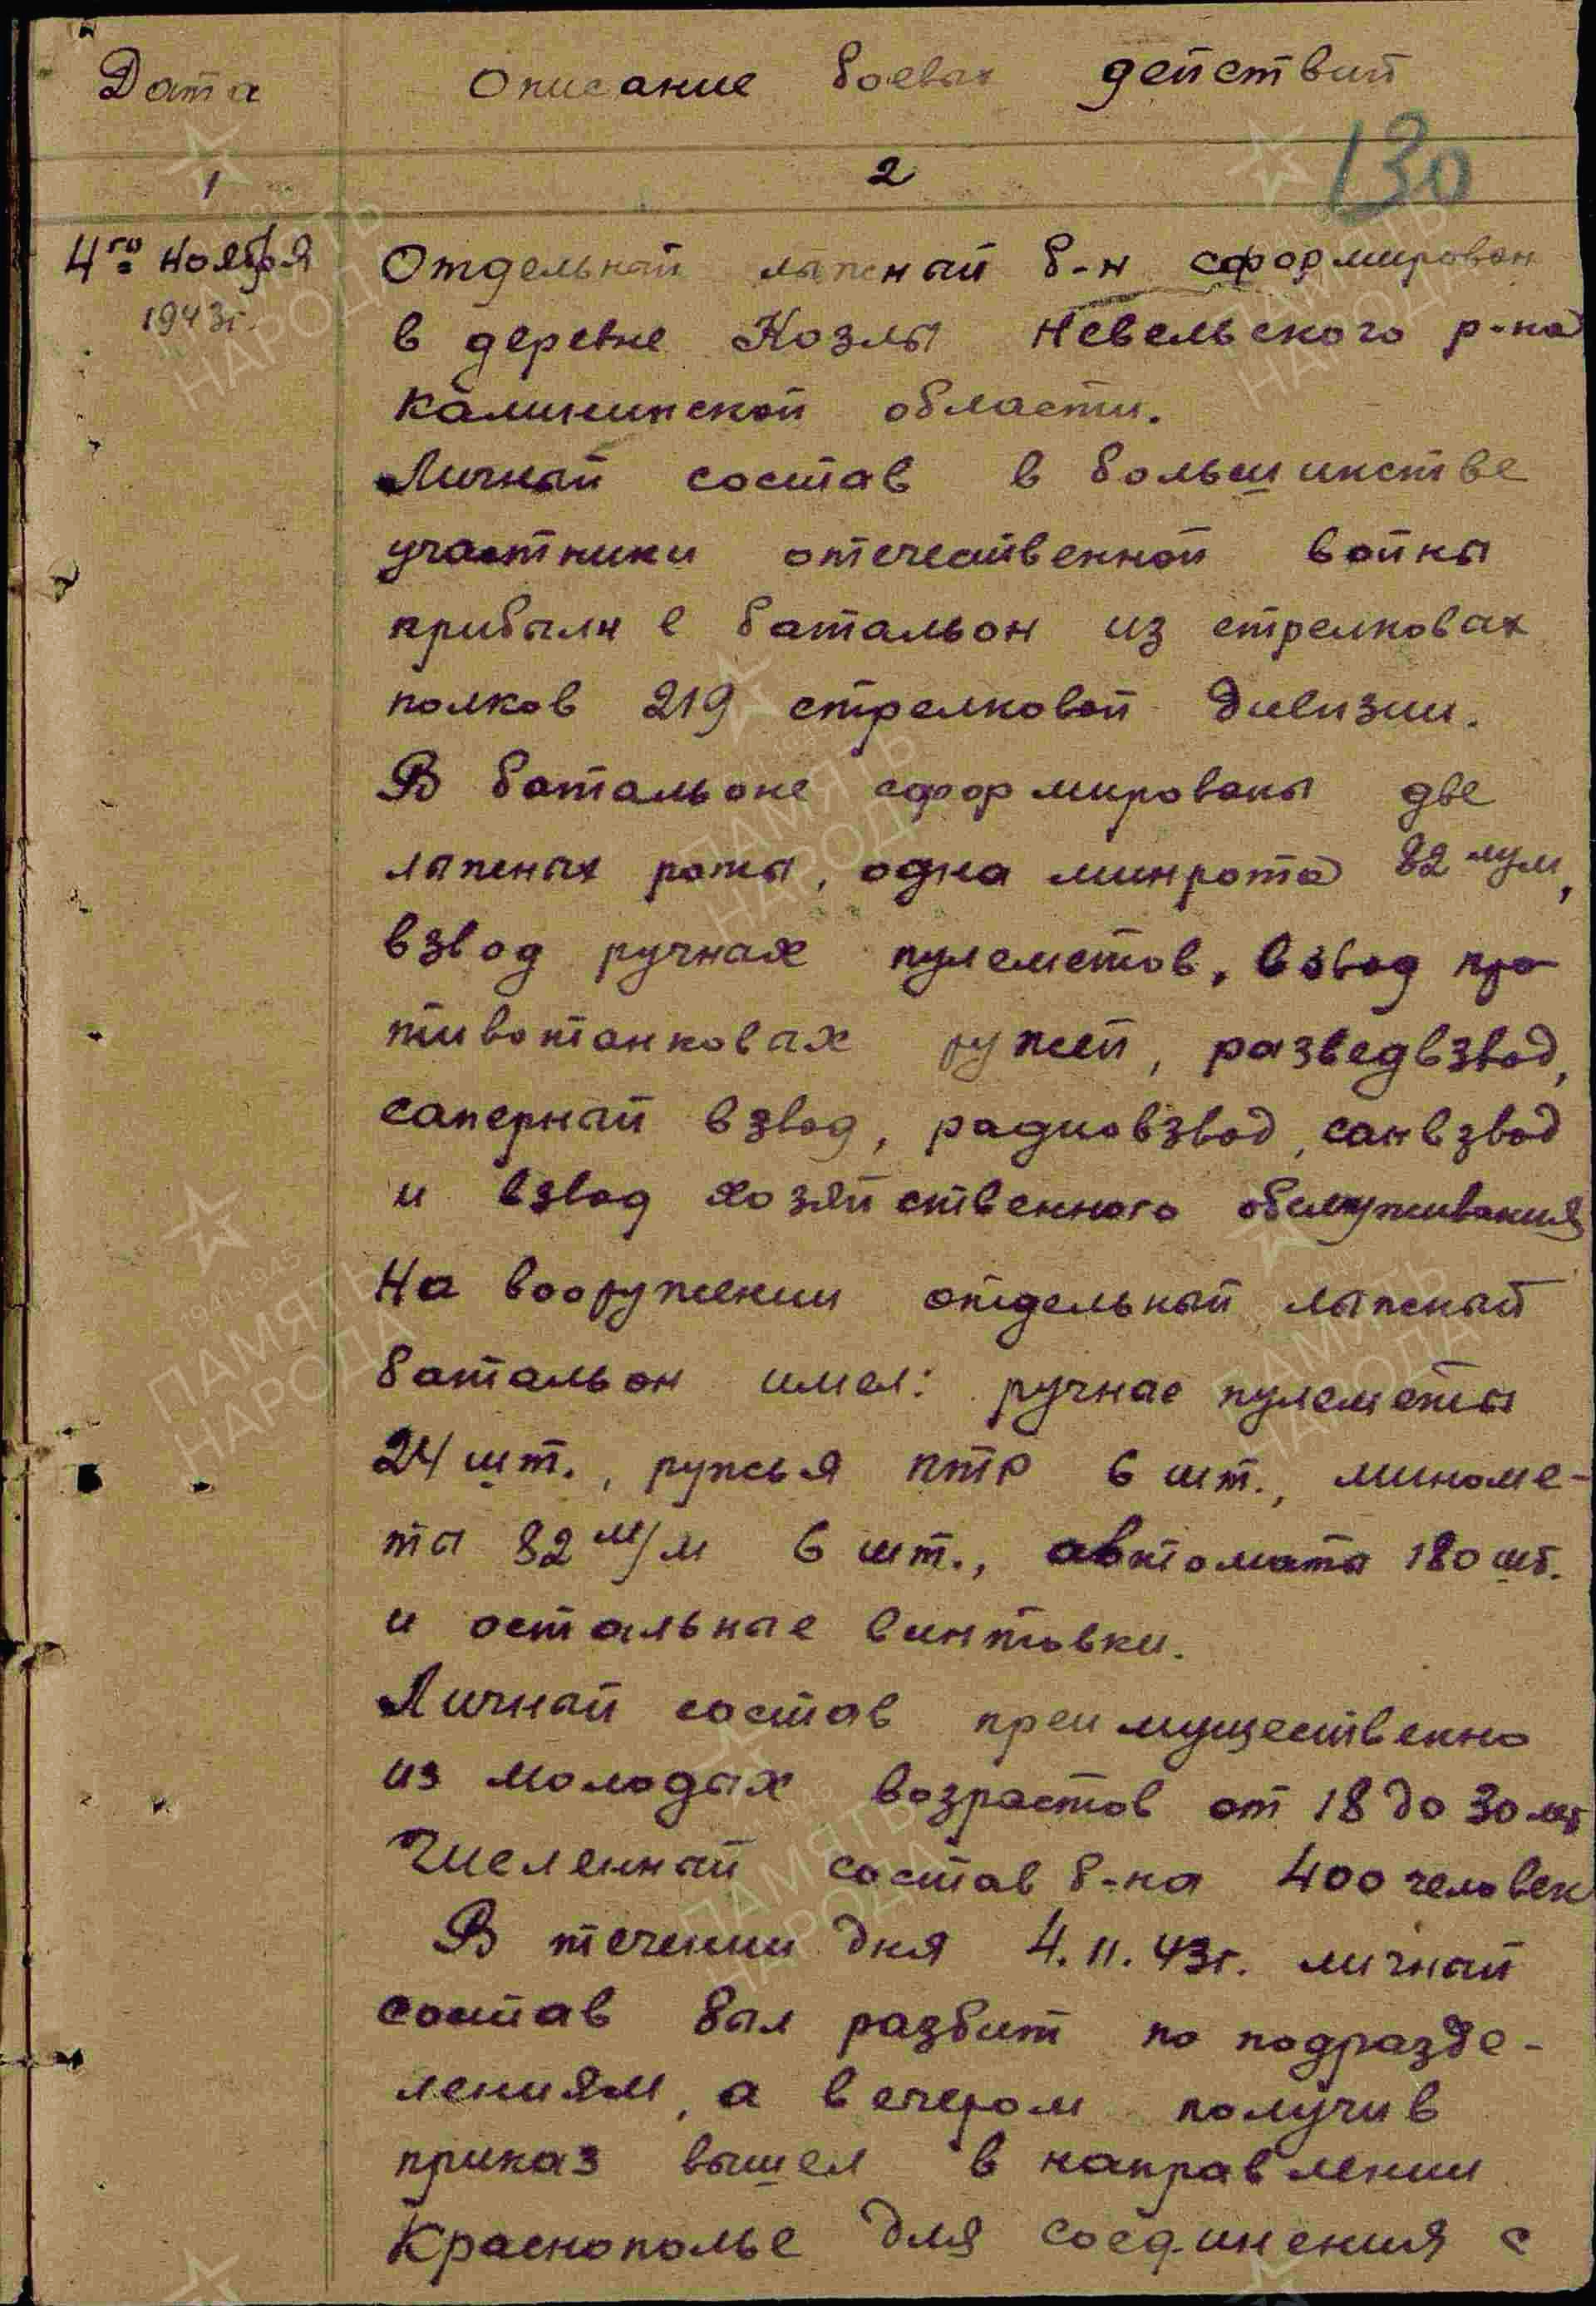 Дата
Описание боевых действий
1
2
130
4го ноября
1943г.
Отдельный лыжный б-н сформирован
в деревне Козлы Невельского р-на
Калининской области.
Личный состав в большинстве
участники отечественной войны
прибыли в батальон из стрелковых
полков 219 стрелковой дивизии.
В батальоне сформированы две
лыжных роты, одна минрота 82 м/м,
взвод ручных пулеметов, взвод про
тивотанковых ружей, разведвзвод,
саперный взвод, радиовзвод, санвзвод
и взвод хозяйственного обслуживания
На вооружении отдельный лыжный
батальон имел: ручные пулеметы
24 шт., ружья ПТР 6 шт., миноме-
ты 82 м/м 6 шт., автоматы 180 шт.
и остальные винтовки.
Личный состав преимущественно
из молодых возрастов от 18 до 30 лет
Численный состав б-на 400 человек
В течении дня 4.11.43г. личный
состав был разбит по подразде-
лениям, а вечером получив
приказ вышел в направлении
Краснополье для соединения с
ПАМЯТЬ
НАРОДА
1941-1945